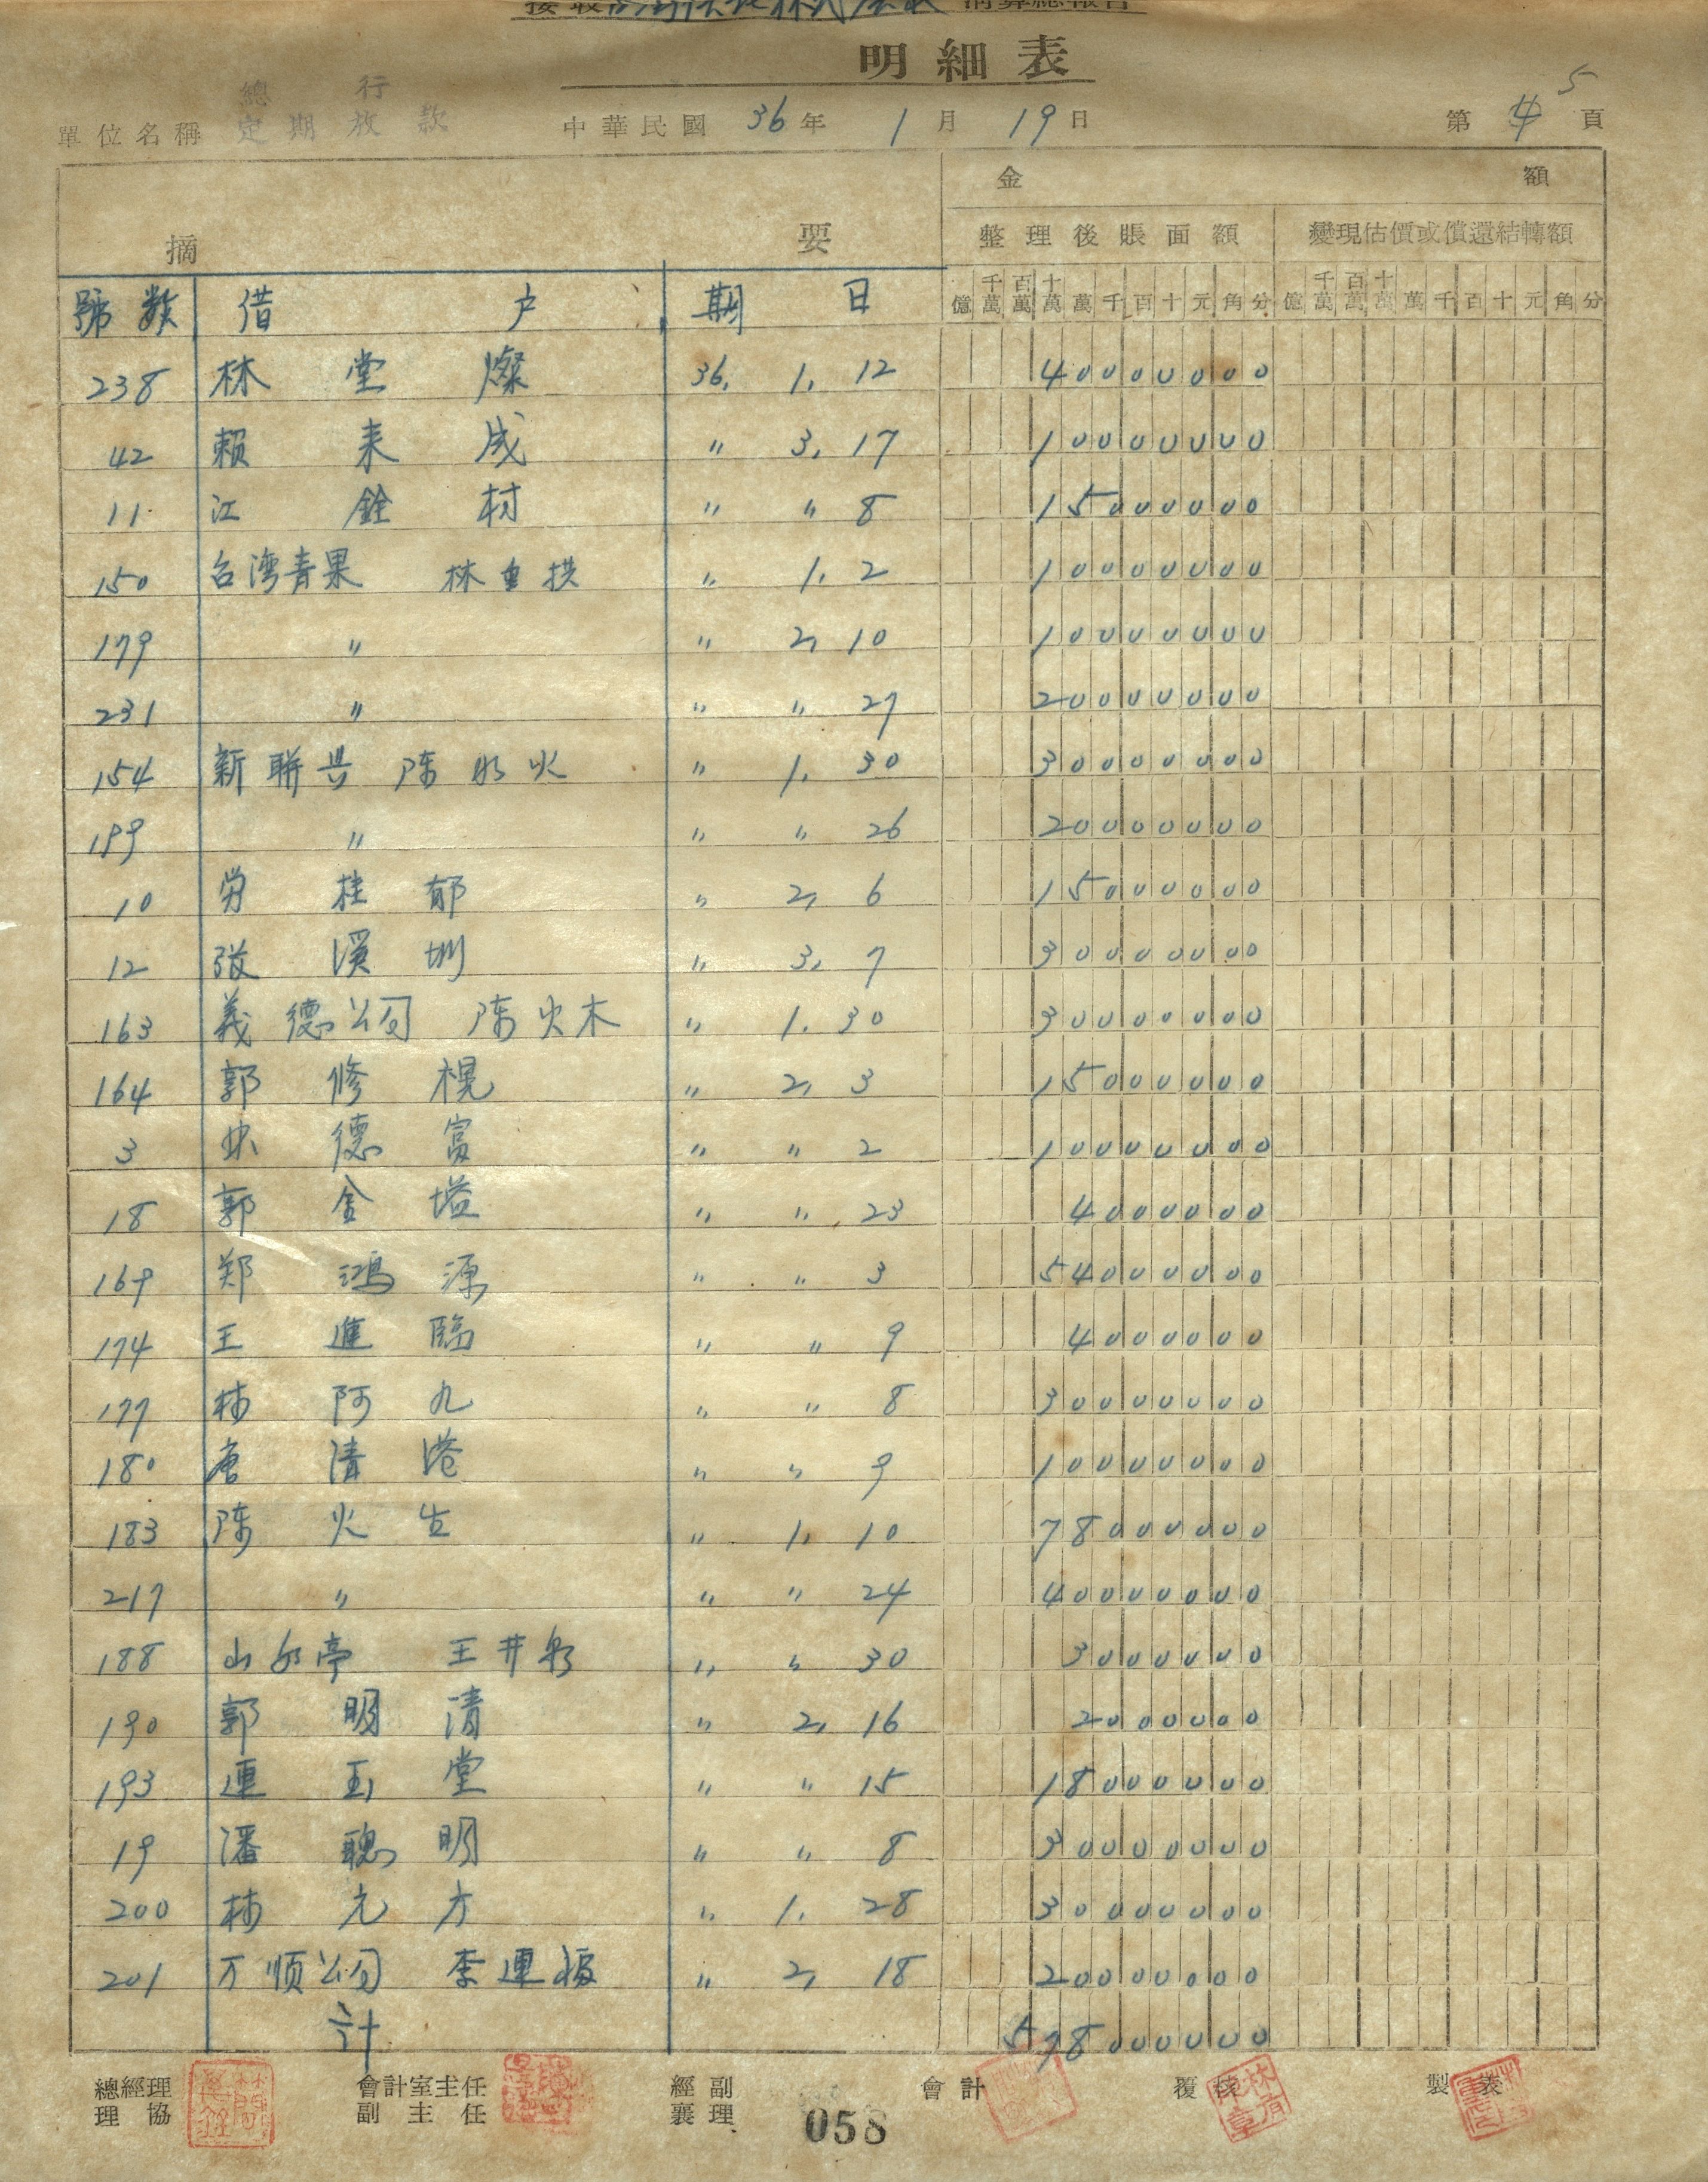 接收台灣信託株式会社 清算總報告
明細表
總行
單位名稱 定期放款 中華民國 36 年 1 月 19 日 第 4 5 頁
金額
摘要 整理後賬面額 變現估價或償還結轉額
億 千萬 百萬 十萬 萬 千 百 十 元 角 分 億 千萬 百萬 十萬 萬 千 百 十 元 角 分
號數 借户 期日
238 林堂燦 36, 1, 12 40000000
42 賴来成 〃 3, 17 10000000
11 江銓村 〃 〃 8 15000000
150 台湾青果 林重拱 〃 1, 2 10000000
179 〃 〃 2, 10 10000000
231 〃 〃 〃 27 20000000
154 新聯 陈 火 〃 1, 30 30000000
199 〃 〃 〃 26 20000000
10 劳桂郁 〃 2, 6 15000000
12 張溪圳 〃 3, 7 30000000
163 義德公司 陈火木 〃 1, 30 30000000
164 郭修榥 〃 2, 3 15000000
3 德富 〃 〃 2 10000000
18 郭金塭 〃 〃 23 4000000
169 郑鴻源 〃 〃 3 54000000
174 王進臨 〃 〃 9 4000000
177 林阿九 〃 〃 8 30000000
180 唐清港 〃 〃 9 10000000
183 陈火生 〃 1, 10 78000000
217 〃 〃 〃 24 40000000
188 山水亭 王井泉 〃 〃 30 3000000
190 郭明清 〃 2, 16 2000000
193 連玉堂 〃 〃 15 18000000
19 潘聰明 〃 〃 8 30000000
200 林元方 〃 1, 28 30000000
201 万顺公司 李連 〃 2, 18 20000000
計 578000000
總經理 會計室主任 經副 會計 覆核 製表
理協 副主任 襄理
058